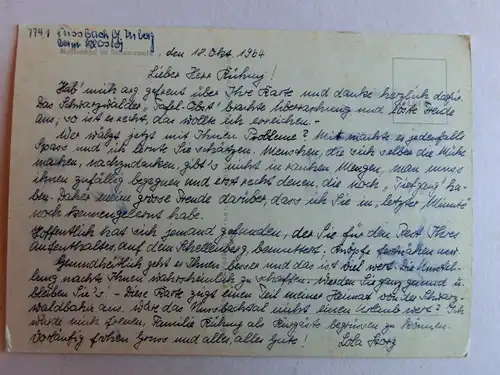 7741 Nussbach /
beim
, den 18. Okt. 1964
Lieber Herr Rühmy!
Hab' mich arg gefreut über Ihre Karte und danke herzlich dafür.
Das Schwarzwälder „Tafel-Obst" brachte Überraschung und löste Freude
aus; so ist es recht, das wollte ich erreichen. -
Wer wälzt jetzt mit Ihnen Probleme? Mir machte es jedenfalls
Spass und ich lernte Sie schätzen, Menschen, die sich selber die Mühe
machen, nachzudenken, gibt's nicht in rauhen Mengen, man muss
ihnen zufällig begegnen und erst recht denen, die noch „Tiefgang" ha-
ben. Daher meine grosse Freude darüber, dass ich Sie in „letzter Minute"
noch kennengelernt habe.
Hoffentlich hat sich jemand gefunden, der Sie für den Rest Ihres
Aufenthaltes auf dem Schellenberg
Gesundheitlich geht es Ihnen besser und das ist viel wert. Die Umstel-
lung machte Ihnen wahrscheinlich zu schaffen. Werden Sie ganz gesund u.
bleiben Sie's. - Diese Karte zeigt einen Teil meiner Heimat von der Schwarz-
waldbahn aus. Wär das Nussbachtal nicht einen Urlaub wert? Ich
würde mich freuen, Familie als Kurgäste begrüssen zu können.
Vorläufig frohen Gruss und alles, alles Gute! Lola